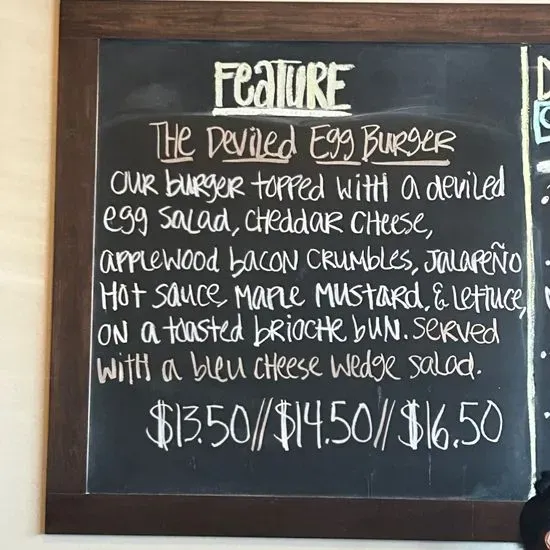 FeatURE
THE DeVILeD EGG BURGeR
OUR BURGeR TOPPeD WITH a DeVILeD
eGG SaLaD, CHeDDaR CHeeSe,
aPPLeWOOD BaCON CRUMBLeS, JaLaPeÑO
HOT SaUCe, MaPLe MUSTaRD, & LeTTUCe,
ON a TOaSTeD BRIOCHe BUN. SeRVeD
WITH a BLeU CHeeSe WeDGe SaLaD.
$13.50//$14.50//$16.50